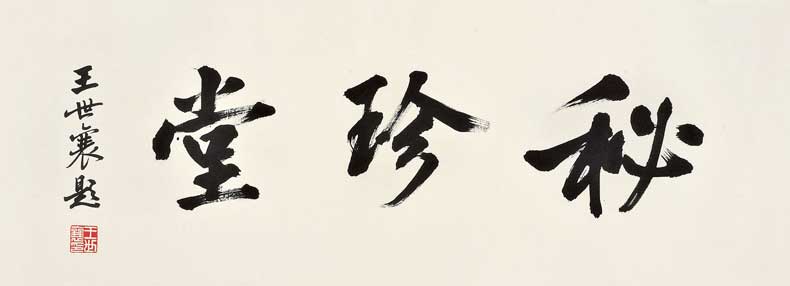 秘珍堂
王世襄題